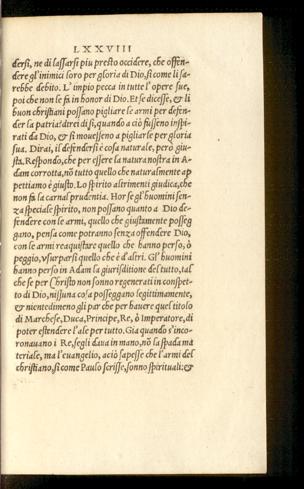 LXXVIII
dersi, ne di lassarsi piu presto occidere, che offen-
dere gl'inimici loro per gloria di Dio, si come li sa-
rebbe debito. L'impio pecca in tutte l'opere sue,
poi che non le fa in honor di Dio. Et se dicesse, & li
buon christiani possano pigliare le armi per defen-
der la patria? direi di si, quando a ciò fusseno inspi-
rati da Dio, & si mouesseno a pigliarle per gloria
sua. Dirai, il defendersi è cosa naturale, però giu-
sta. Respondo, che per essere la natura nostra in A-
dam corrotta, nō tutto quello che naturalmente ap
pettiamo è giusto. Lo spirito altrimenti giudica, che
non fa la carnal prudentia. Hor se gl'huomini sen-
za speciale spirito, non possano quanto a Dio de-
fendere con le armi, quello che giustamente posseg
gano, pensa come potranno senza offendere Dio,
con le armi reaquistare quello che hanno perso, ò
peggio, vsurparsi quello che è d'altri. Gl'huomini
hanno perso in Adam la giurisditione del tutto, tal
che se per Christo non sonno regenerati in conspet-
to di Dio, nissuna cosa posseggano legittimamente,
& nientedimeno gli par che per hauere quel titolo
di Marchese, Duca, Principe, Re, ò Imperatore, di
poter estendere l'ale per tutto. Gia quando s'inco-
ronauano i Re, segli daua in mano, nō la spada ma
teriale, ma l'euangelio, acciò sapesse che l'armi del
christiano, si come Paulo scrisse, sonno spirituali: &